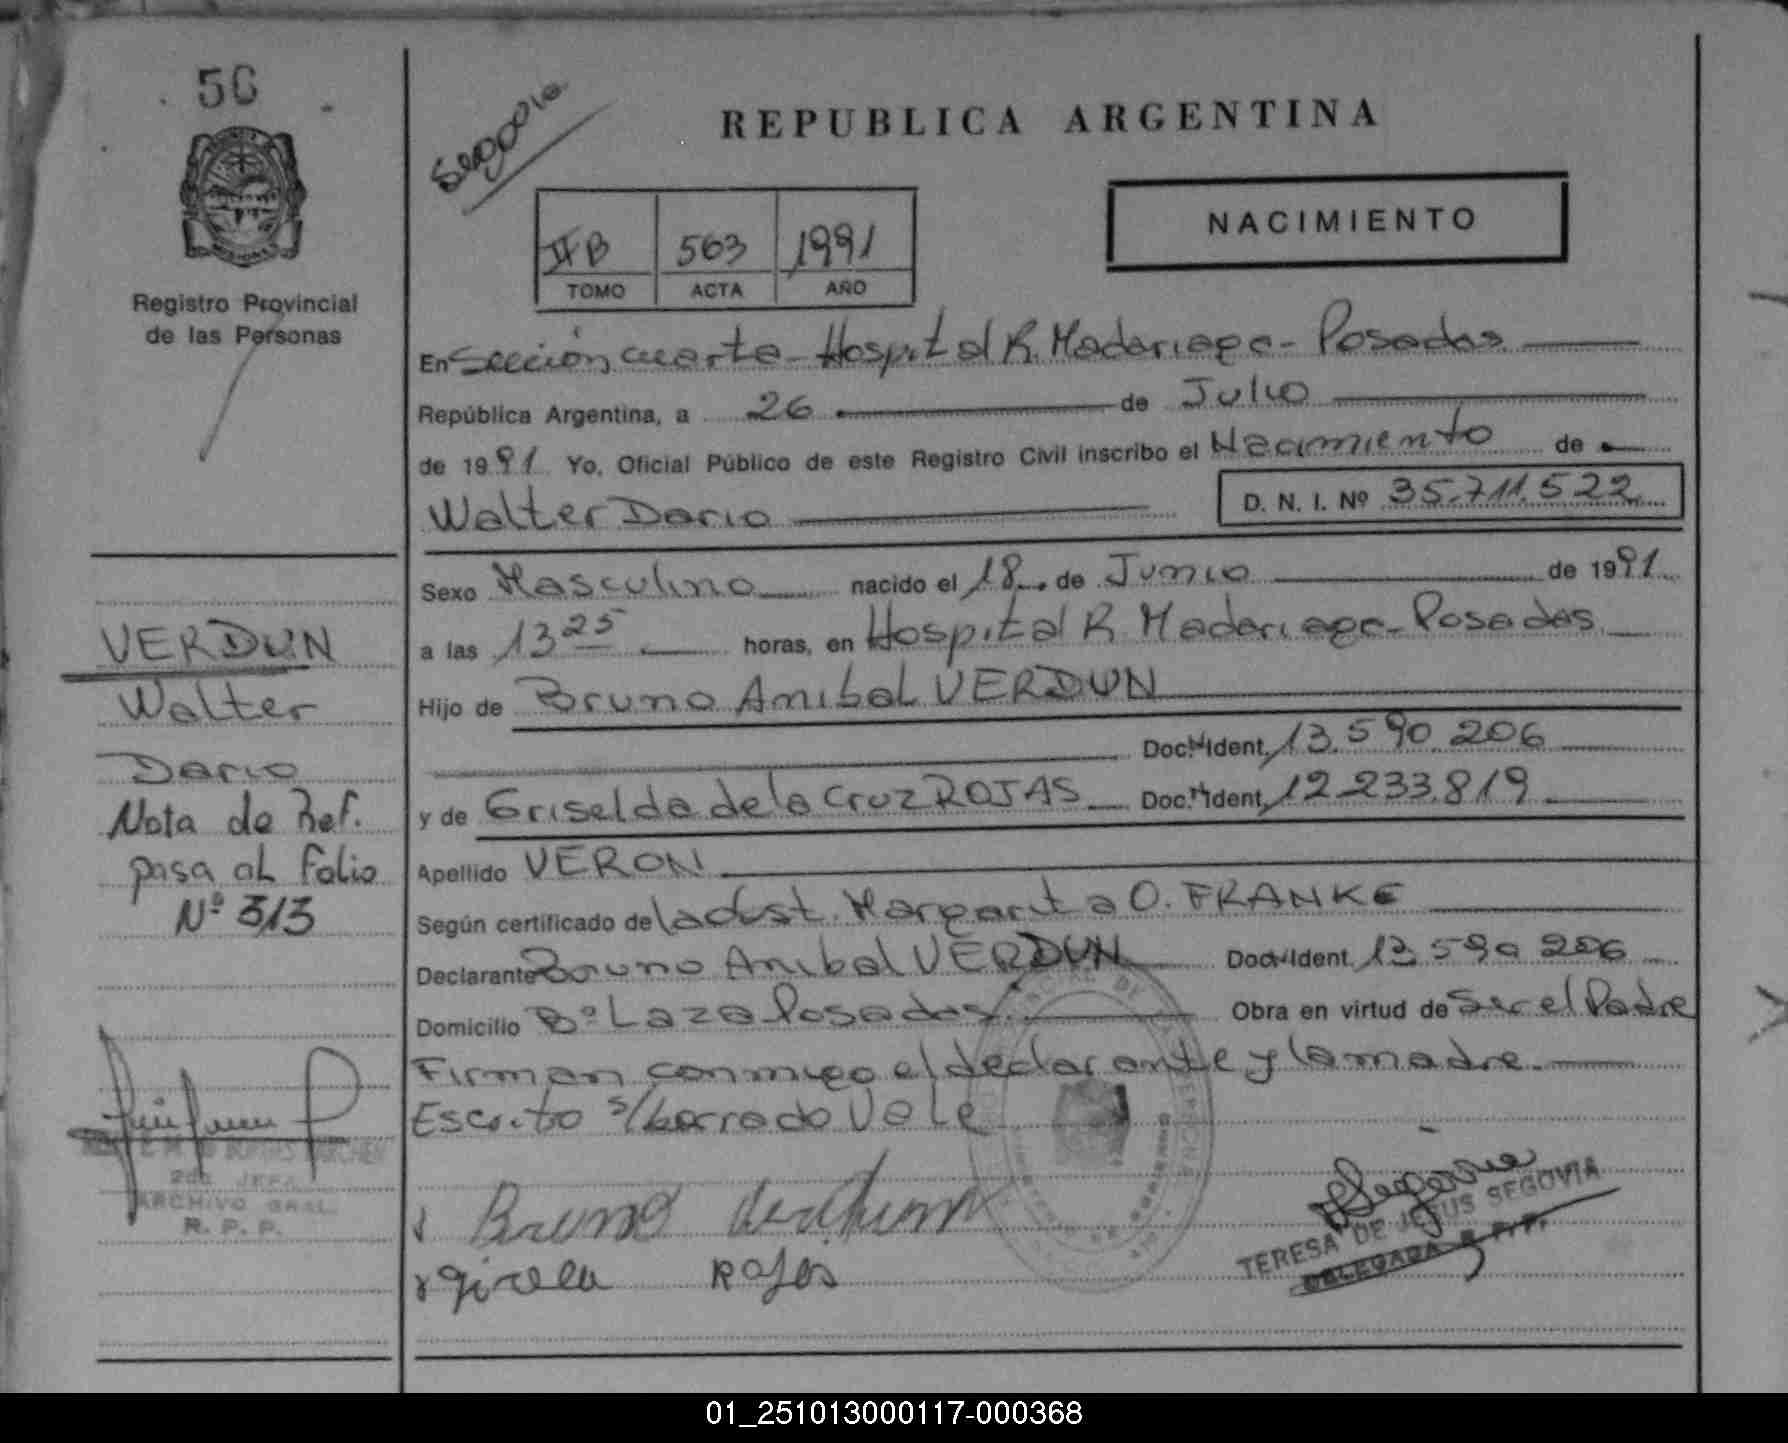 56
Registro Provincial
de las Personas
VERDUN
Walter
Dario
Nota de Ref.
pasa al Folio
Nº 313
2da JEFA
ARCHIVO GRAL.
R. P. P.
Segovia
REPUBLICA ARGENTINA
NACIMIENTO
II B 563 1991
TOMO ACTA AÑO
En Sección cuarta - Hospital R. Madariaga - Posadas
República Argentina, a 26 de Julio
de 1991 Yo, Oficial Público de este Registro Civil inscribo el Nacimiento de
Walter Dario D. N. I. Nº 35.711.522
Sexo Masculino nacido el 18 de Junio de 1991
a las 13 25 horas, en Hospital R. Madariaga - Posadas
Hijo de Bruno Anibal VERDUN
Doc. N. Ident. 13.590.206
y de Griselda de la Cruz ROJAS Doc. N. Ident. 12.233.819
Apellido VERON
Según certificado de la obst. Margarita O. FRANKE
Declarante Bruno Anibal VERDUN Doc. N. Ident. 13.590.206
Domicilio Bº Laza Posadas Obra en virtud de Ser el Padre
Firman conmigo el declarante y la madre.
Escrito s/borrado Vale
Bruno Verdun
Rojas
TERESA DE JESUS SEGOVIA
DELEGADA R. P. P.
01_251013000117-000368